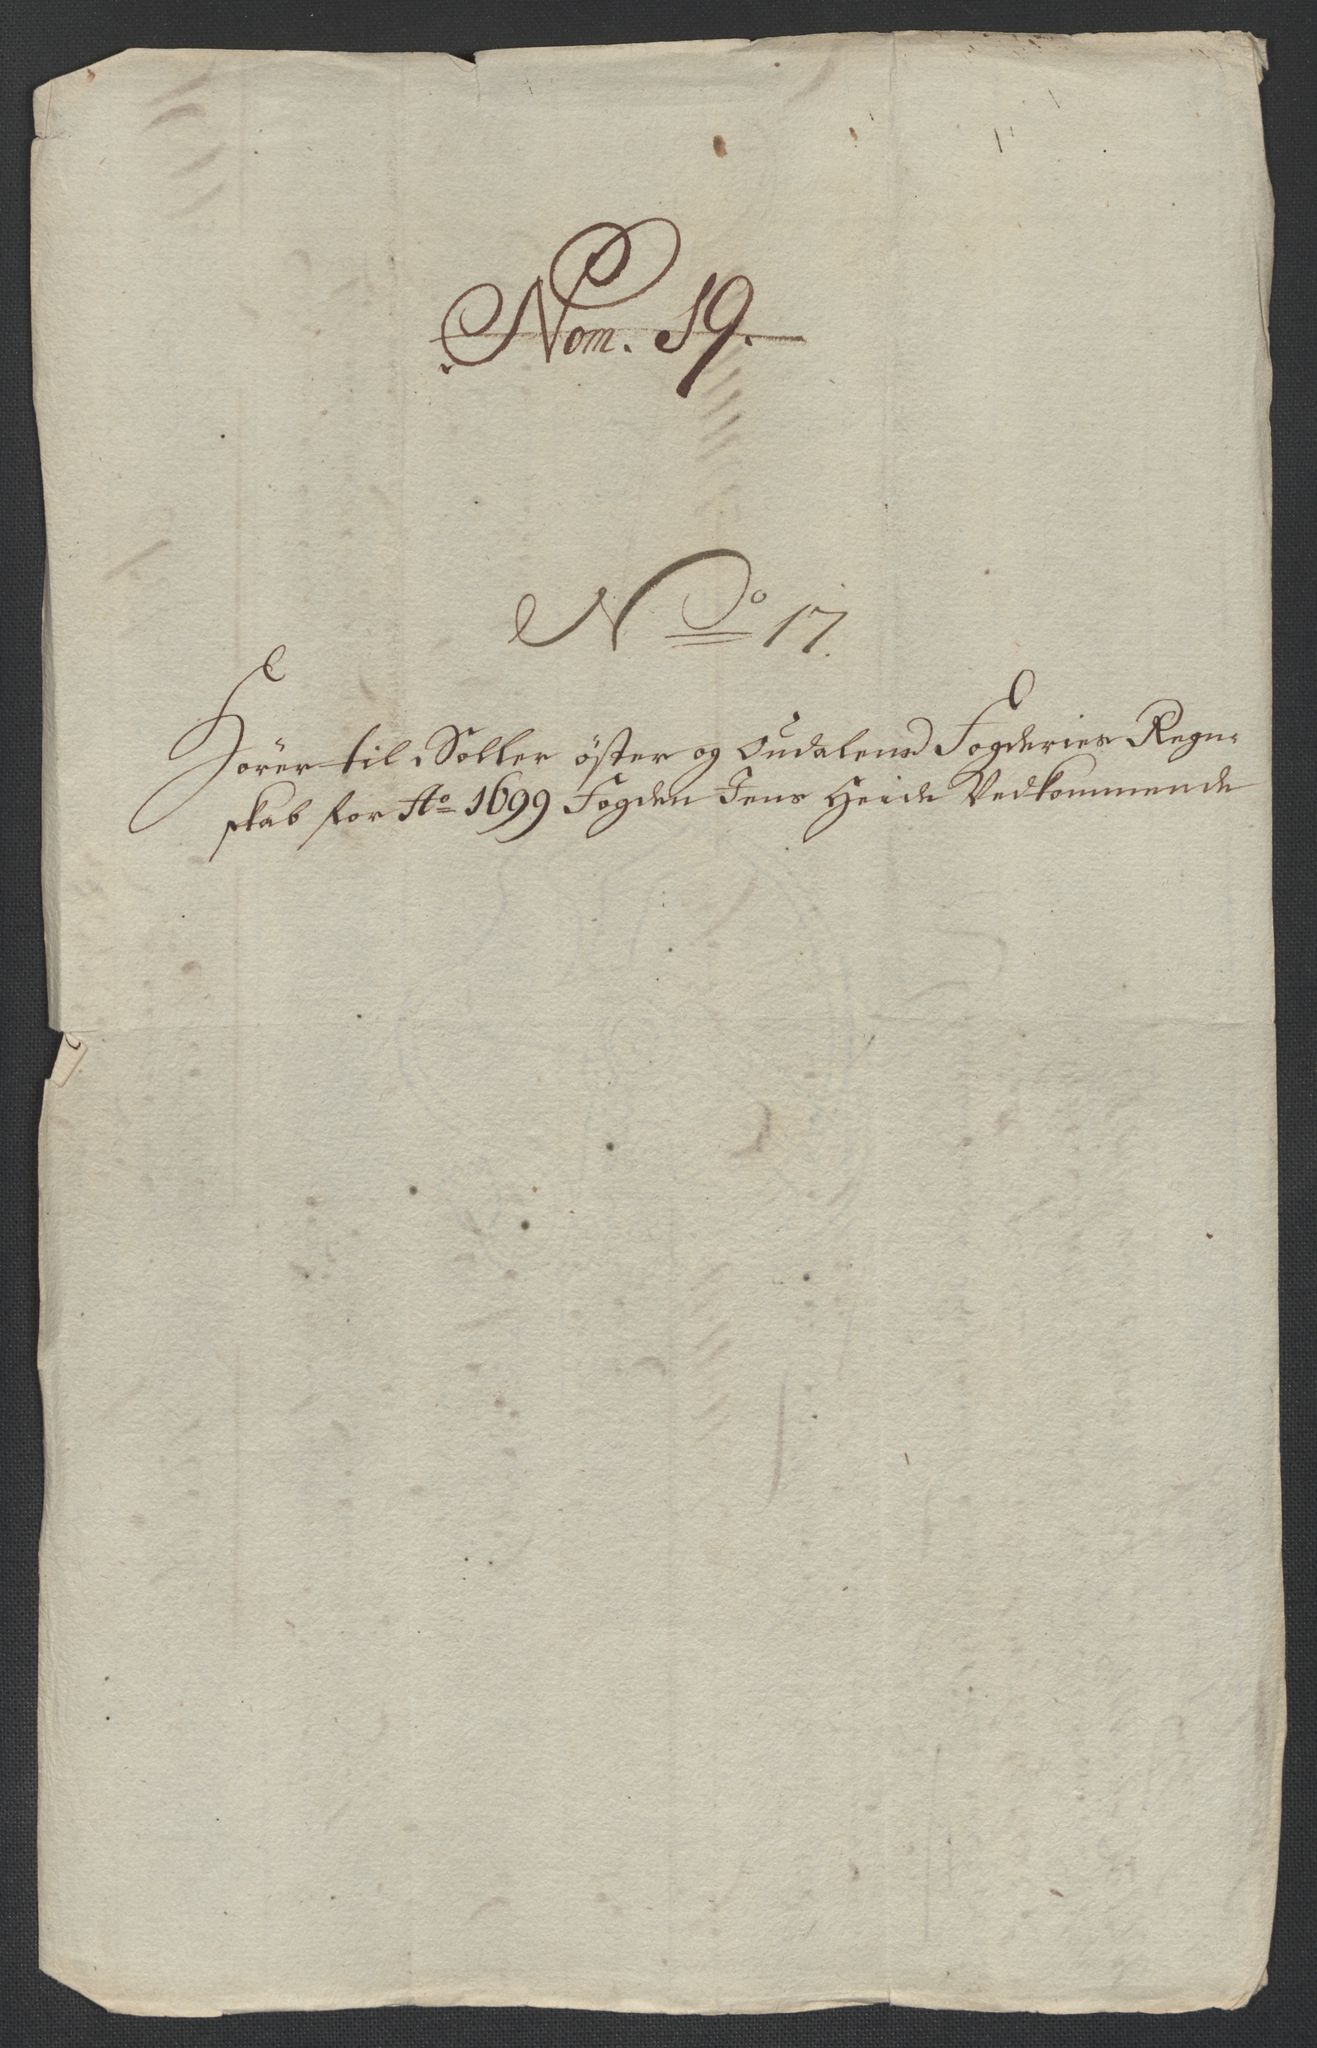 Nom. 19.
No 17.
Hörer til Soller öster og Oudalens Fogderies Regn-
skab for Ao 1699 Fogden Jens Heide Vedkommende